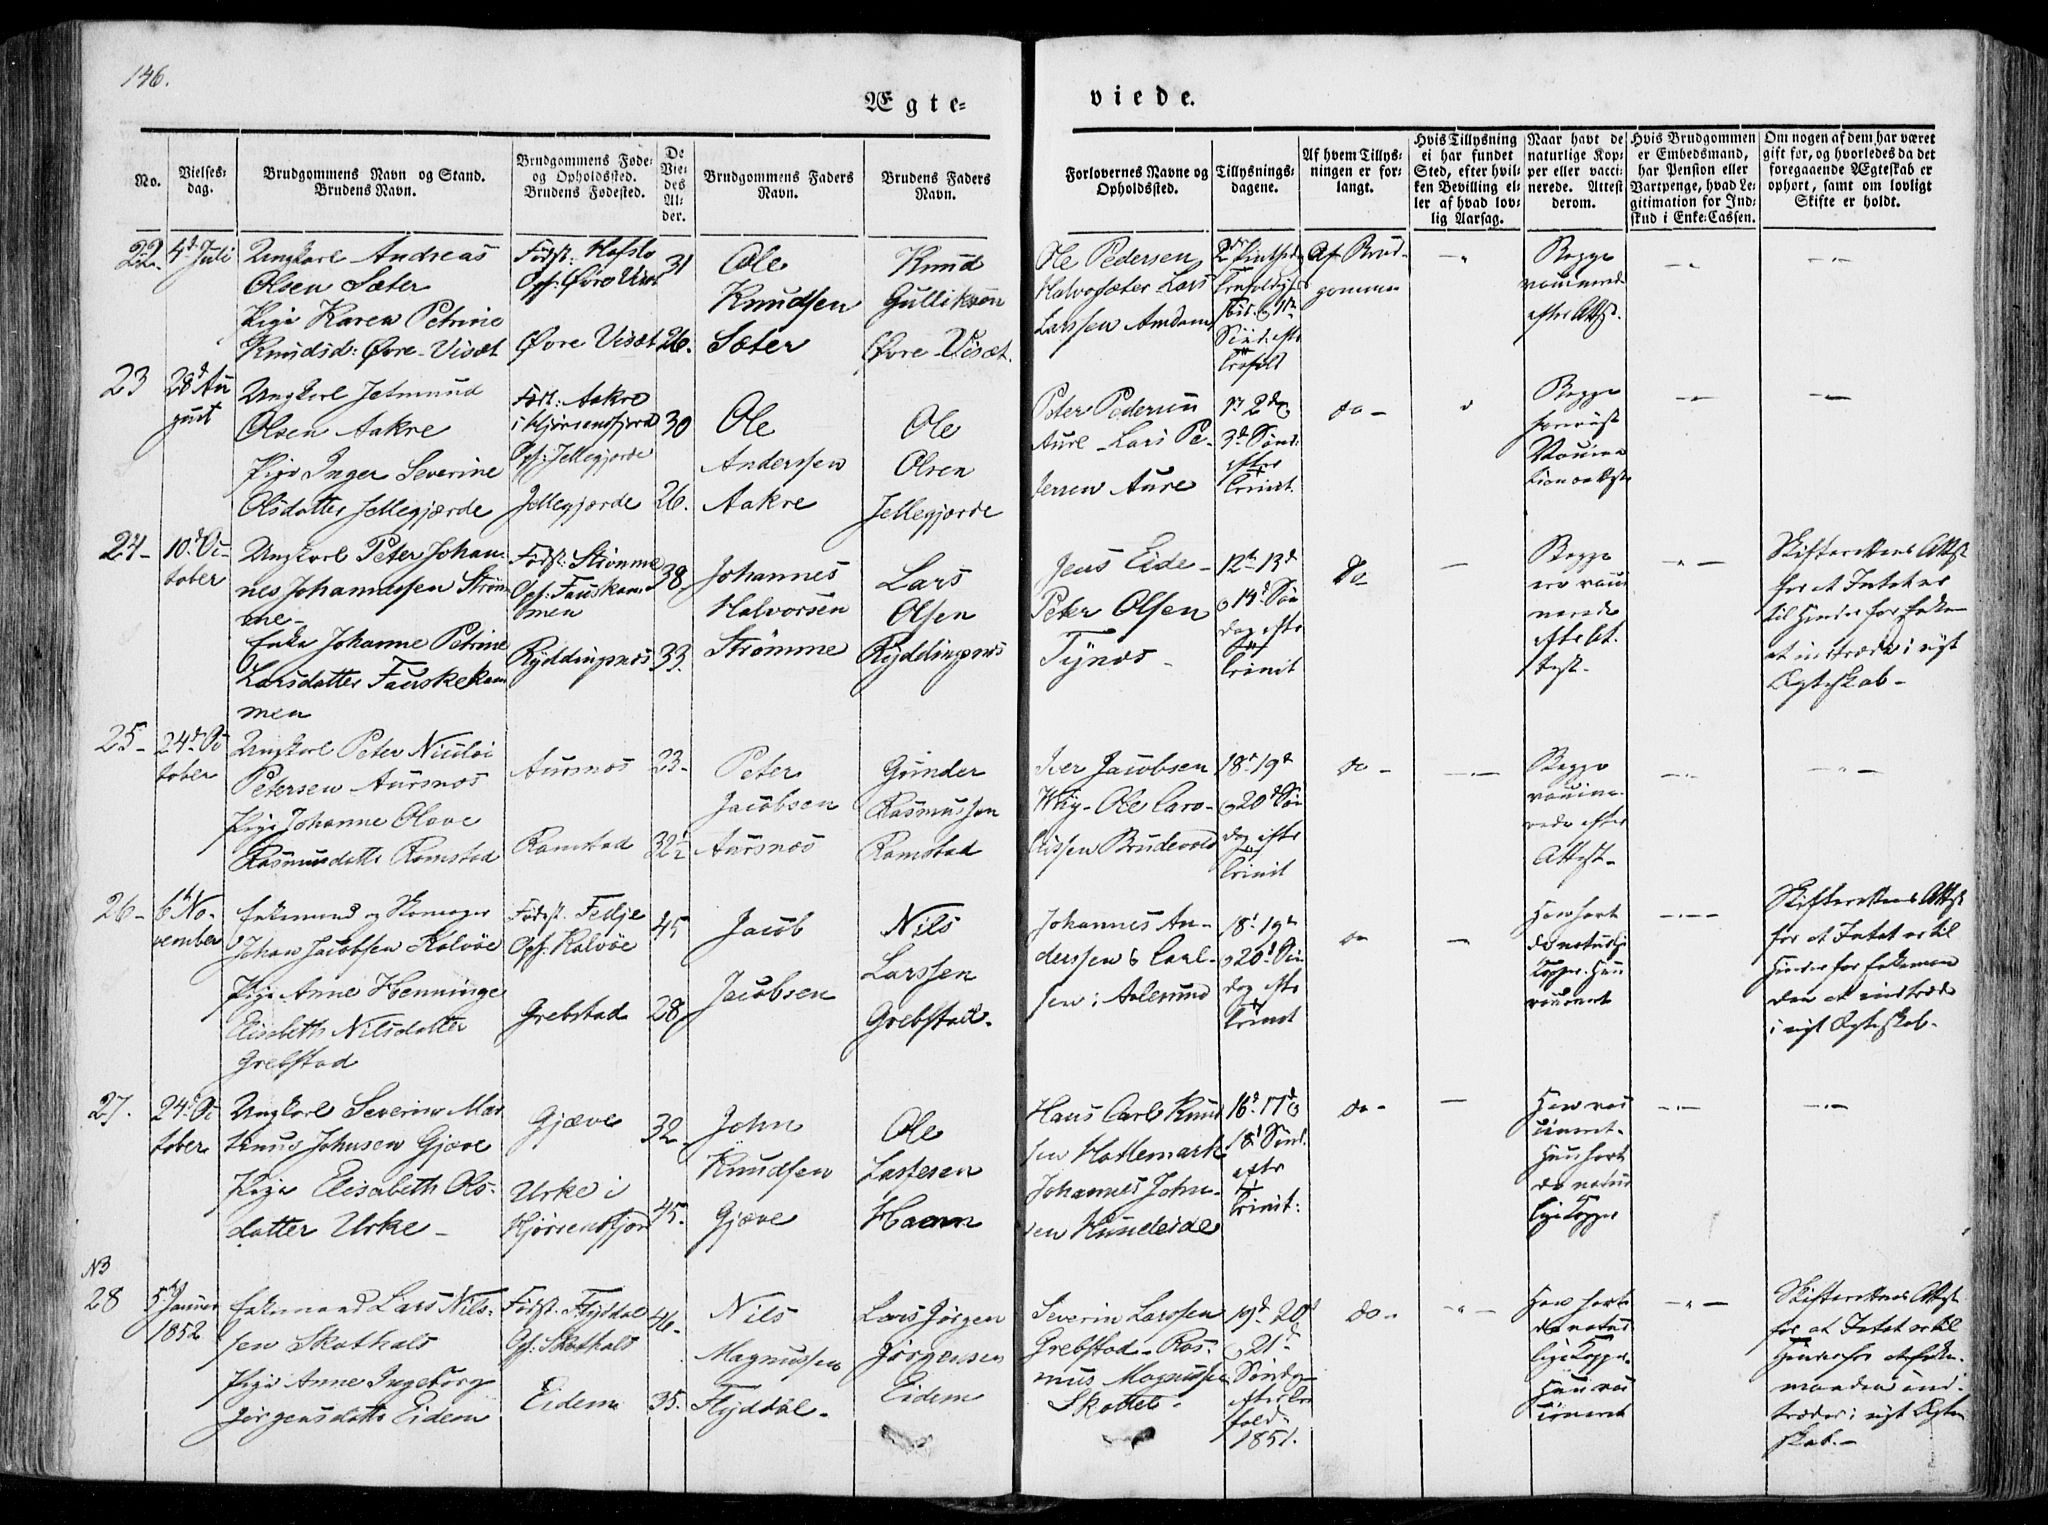 146.
Ægte=
viede.
No.
Vielses=
dag.
Brudgommens Navn og Stand.
Brudens Navn.
Brudgommens Føde=
og Opholdssted.
Brudens Fødested.
De
Vie=
des
Al=
der.
Brudgommens Faders
Navn.
Brudens Faders
Navn.
Forlovernes Navne og
Opholdssted.
Tillysnings=
dagene.
Af hvem Tillys=
ningen er for=
langt.
Hvis Tillysning
ei har fundet
Sted, efter hvil=
ken Bevilling el=
ler af hvad lov=
lig Aarsag.
Naar havt de
naturlige Kop=
per eller vacci=
nerede. Attest
derom.
Hvis Brudgommen
er Embedsmand,
har Pension eller
Vartpenge, hvad Le=
gitimation for Ind=
skud i Enke=Cassen.
Om nogen af dem har været
gift før, og hvorledes da det
foregaaende Ægteskab er
ophørt, samt om lovligt
Skifte er holdt.
22.
4d Juli
Ungkarl Andreas
Olsen Sæter
Pige Karen Petrine
Knudsd: Øvre-Visæt
Født: Hofslo
Øvre Visæt
31
26.
Ole
Knudsen
Sæter
Knud
Gulliksen
Øvre-Visæt.
Ole Pedersen
Halvosæter Lars
Larssen Amdam
Af Brud-
gommen
Begge
vaccinerede
efter Attst.
23
28d Au
gust
Ungkarl Jetmund
Olsen Aakre
Pige Inger Severine
Olsdatter Jellegjærde
Født: Aakre
i Hjørrendfjord
Opf: Jellegjærde
Jellegjærde
30
26.
Ole
Anderssen
Aakre
Ole
Olsen
Jellegjærde
Peter Pedersen
Aure - Lars Pe-
Aure
1ste 2d og
3d Sønd.
efter
Trinit.
do -
Begge
24-
10d Oc-
tober
Ungkarl Peter Johan
nes Johannessen Strøm
me-
Enke Johanne Petrine
Larsdatter Fauskekam
men
Født: Strømme
Opf: Fauskam
men
Ryddingnæs
38
33.
Johannes
Halvorsen
Strømme
Lars
Olsen
Ryddingnæs
Jens Eide -
Peter Olsen
Tynæs -
12te 13d
og 14d Søn
dag efter
Trinit
do
Begge
ere vacci
nerede
efter At
test-
Skifterettens Attst
for at Intet er
til Hinder for Enken
at indtræde i nyt
Ægteskab -
25-
24d Oc
tober
Ungkarl Peter Nicolai
Petersen Aursnæs
Pige Johanne Olave
Rasmusdatter Ramstad
Aursnæs
Ramstad
23-
32½
Peter
Jacobsen
Aursnæs
Gunder
Rasmussen
Ramstad
Iver Jacobsen
Ole Caro-
Brudevold
18d 19d
og 20d Søn
dag efter
Trinit
do -
Begge
vaccine-
rede efter
Attest-
26-
6te No-
vember
Enkemand og Skomager
Johan Jacobsen Kalvøe
Pige Anne Henninge
Elisabeth Nilsdatter
Grebstad
Født: Fedje
Opf: Kalvøe
Grebstad
45
28
Jacob
Jacobsen
Nils
Larssen
Grebstad-
Johannes An-
derssen & Carl-
sen i Aalesund
18d 19d
og 20d Søn
dag efter
Trinit
do
Han havt
de naturlige
Kopper. Hun
vaccineret
Skifterettens Attst
for at Intet er til
Hinder for Enkeman
den at indtræde
i nyt Ægteskab-
27.
24d Oc
tober
Ungkarl Severin Mar
thinus Johnsen Gjæve
Pige Elisabeth Ols-
datter Urke -
Gjæve
Urke i
Hjørrendfjord
32
45.
John
Knudsen
Gjæve
Ole
Lassesen
Haem
Hans Carl Knud
sen Hattemark
Johannes John-
sen Kunderde
16d 17d og
18d Sønd.
efter
Trinit:
do -
Han vac
cineret-
Hun havt
de natur
lige Kopper
NB
28
5te Januar
1852
Enkemand Lars Nils-
sen Skathals
Pige Anne Ingeborg
Jørgensdatter Eidem
Født: Flyddal
Opf: Skathals
Eidem
46-
35.
Nils
Magnussen
Flyddal-
Lars Jørgen
Jørgensen
Eidem
Severin Larssen
Grebstad - Ras-
mus Magnussen
Skottet -
19d 20d
og 21d
Søndag
1851.
do -
Han havt
de natur
lige Kopper.
Hun vac
cineret
Skifterettens Attst
for at Intet er til
Hinder for at Enke-
manden ind-
træder i nyt Ægte
skab. -